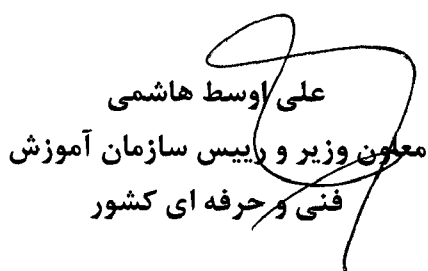 علی اوسط هاشمی
معاون وزیر و رییس سازمان آموزش
فنی و حرفه ای کشور